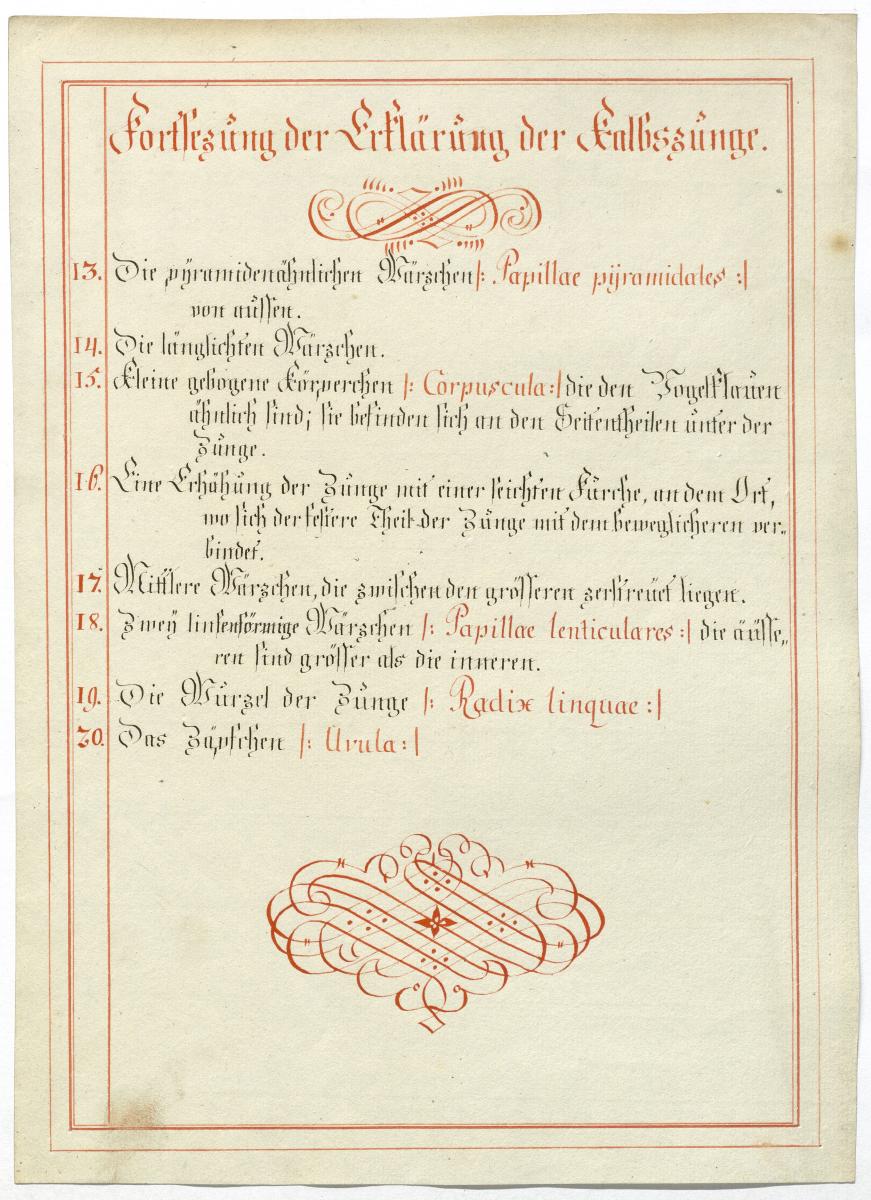 Fortsezung der Erklärung der Kalbszunge.
13. Die pÿramidenähnlichen Wärzchen /: Papillae pÿramidales :/
von aussen.
14. Die länglichten Wärzchen.
15. Kleine gebogene Körperchen /: Corpuscula :/ die den Vogelklauen
ähnlich sind; sie befinden sich an den Seitentheilen unter der
Zunge.
16. Eine Erhöhung der Zunge mit einer leichten Furche, an dem Ort,
wo sich der festere Theil der Zunge mit dem beweglicheren ver-
bindet.
17. Mittlere Wärzchen, die zwischen den grösseren zerstreuet liegen.
18. Zweÿ linsenförmige Wärzchen /: Papillae lenticulares :/ die äusse-
ren sind grösser als die inneren.
19. Die Wurzel der Zunge /: Radix linquae :/
20. Das Zäpfchen /: Uvula :/